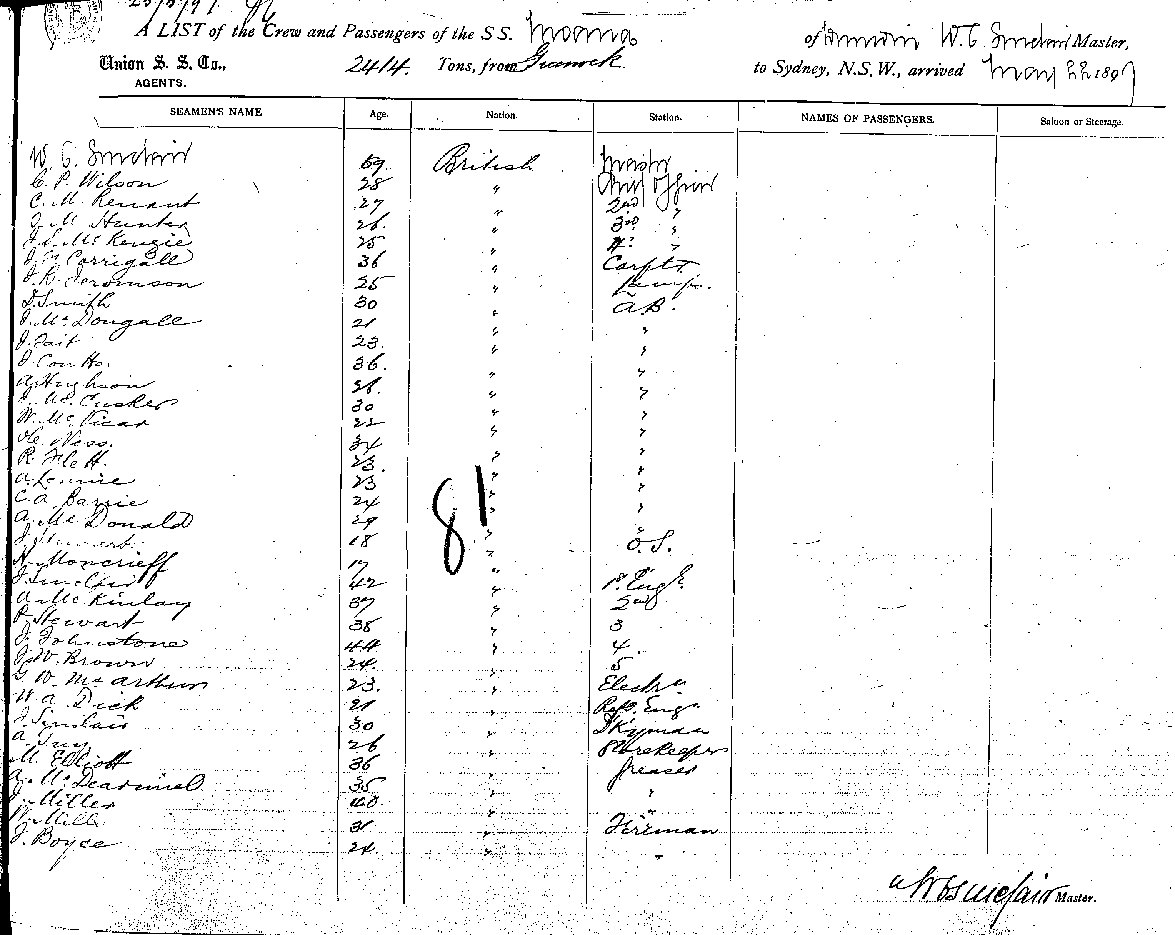 25/5/97
A LIST of the Crew and Passengers of the S.S. Moana of Dunedin W. C. Sinclair Master,
Union S. S. Co., AGENTS. 2414 Tons, from Greenock to Sydney, N.S.W., arrived May 22 1897
SEAMEN'S NAME Age. Nation. Station. NAMES OF PASSENGERS. Saloon or Steerage.
W. C. Sinclair 59 British Master
C. P. Wilson 28 " Chief Officer
C. M. Rennant 27 " 2nd "
J. M. Hunter 26 " 3rd "
McKenzie 25 " 4th "
Corrigall 36 " Carptr
J. B. Jeromson 25 " Lamps.
Smith 30 " A.B.
J. McDougall 21 " "
J. Tait 23 " "
J. Coutts. 36 " "
A. Hughson 26 " "
McCusker 30 " "
W. McVicar 22 " "
Ness. 34 " "
R. Flett. 23 " "
A. Lennie 23 " "
C. A. Barrie 24 " "
A. McDonald 29 " "
18 " O.S.
Moncrieff 17 "
J. Sinclair 42 " 1st Engr
A. McKinlay 37 " 2nd
Stewart 38 " 3
J. Johnstone 44 " 4.
J. W. Brown 24 " 5
G. W. McArthur 23 " Electrn
W. A. Dick 21 " Engr
J. Sinclair 30 " Dkyman
A. 26 " Storekeeper
M. Elliott 36 " Greaser
35 " "
J. Miller 40 " "
W. Mills 31 " Fireman
J. Boyce 24 " "
81
W C Sinclair Master.